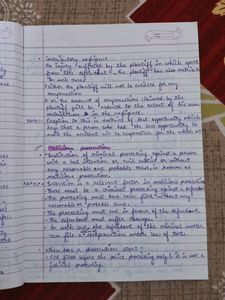 • Contributory negligence
An injury suffered by the plaintiff in which apart
from the defendant, the plaintiff has also contributed
in such cases,
Either the plaintiff will not be entitled for any
compensation
Or the amount of compensation claimed by the
plaintiff will be reduced to the extent of his own
contribution in the negligence.
Note:- Exception to this is doctrine of last opportunity which
says that a person who had the last opportunity to
avoid the accident will be responsible for the whole
5) Malicious prosecution
• Institution of criminal proceeding against a person
with a bad intention or will motive or without
any reasonable and probable cause, is known as
malicious prosecution.
Note:- • Intention is a relevant factor in malicious prosecution
• There must be a criminal proceeding against a defendant
• The proceeding must have been filed without any
reasonable or probable cause.
• The proceeding must end in favour of the defendant.
• The defendant must suffer damages.
• In such case the defendant of the criminal matter
can file compensation under law of torts.
When does a prosecution start?
• FIR filed before the police proceeding only & it is not a
judicial proceeding.